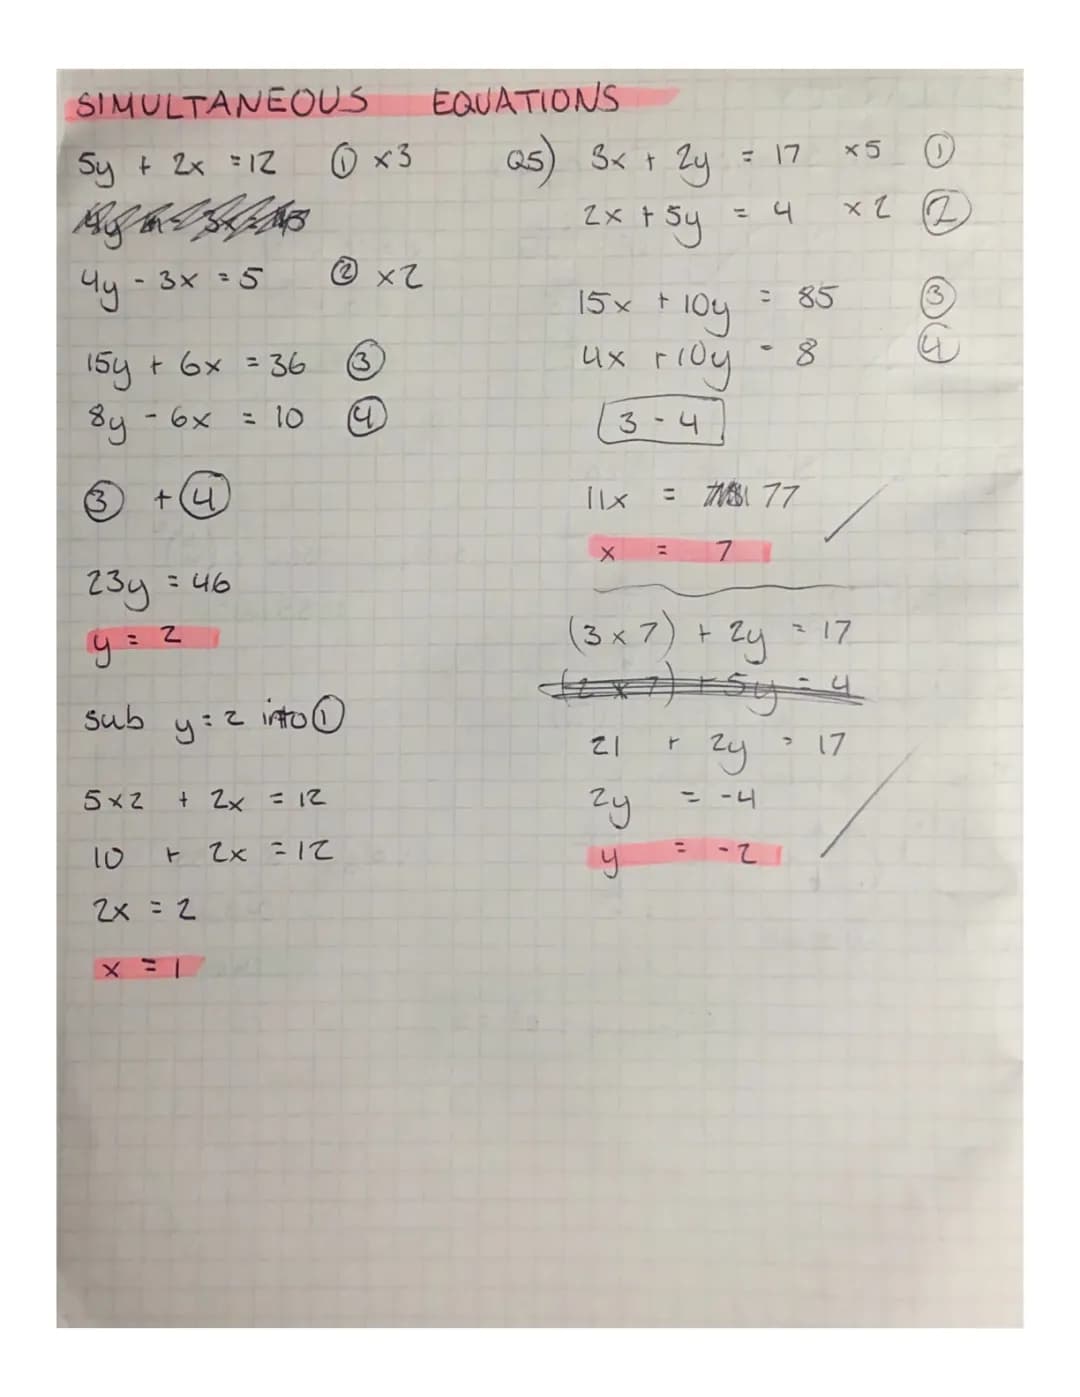 SIMULTANEOUS EQUATIONS
5y + 2x = 12 ① ×3
4y - 3x = 5 ② ×2
15y + 6x = 36 ③
8y - 6x = 10 ④
③ + ④
23y = 46
y = 2
sub y = 2 into ①
5×2 + 2x = 12
10 + 2x = 12
2x = 2
x = 1
Q5) 3x + 2y = 17 ×5 ①
2x + 5y = 4 ×2 ②
15x + 10y = 85 ③
4x + 10y = 8 ④
3 - 4
11x = 77
x = 7
(3 × 7) + 2y = 17
(2 × 7) + 5y = 4
21 + 2y = 17
2y = -4
y = -2